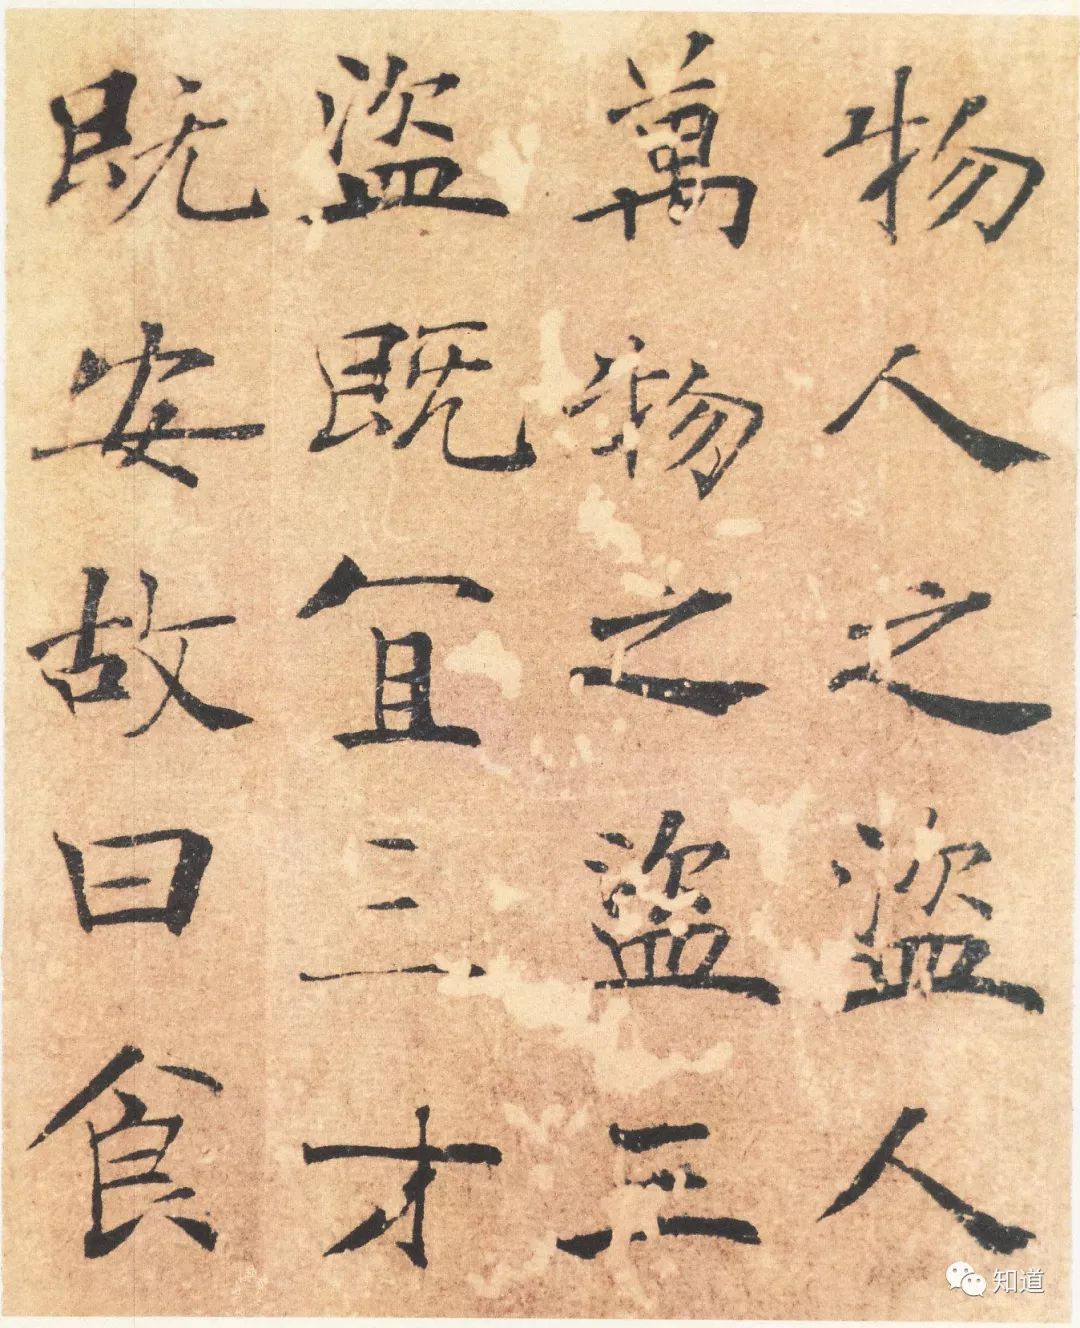 物人之盜人
萬物之盜三
盜既宜三才
既安故曰食
知道